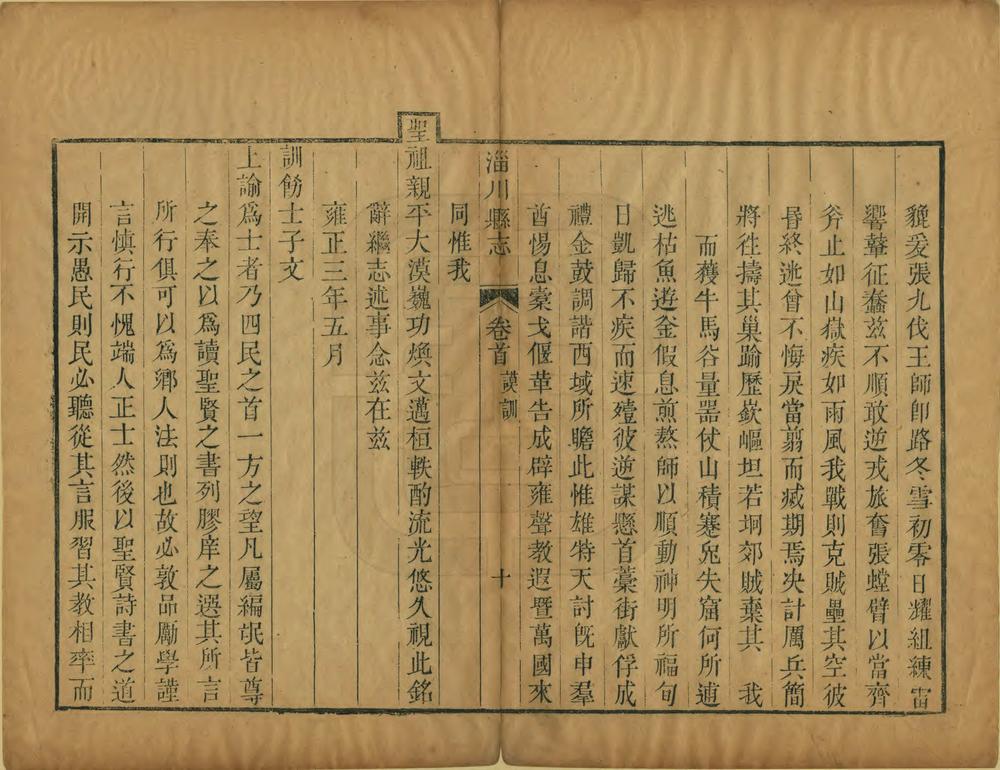 貔爰張九伐王師卽路冬雪初零日耀組練雷
響鼙征蠢茲不順敢逆戎旅奮張螳臂以當齊
斧止如山嶽疾如雨風我戰則克賊壘其空彼
昏終迷曾不悔戾當翦而滅期焉決計厲兵簡
將往擣其巢踰歷嶔嶇坦若坰郊賊棄其 我
而穫牛馬谷量器仗山積蹇兔失窟何所逋
逃枯魚遊釜假息煎熬師以順動神明所福旬
日凱歸不疾而速殪彼逆謀懸首藁街獻俘成
禮金鼓調諧西域所瞻此惟雄特天討旣申羣
酋惕息櫜戈偃革告成辟雍聲教遐暨萬國來
淄川縣志 卷首 謨訓 十
同惟我
聖祖親平大漠巍功煥文邁桓軼酌流光悠久視此銘
辭繼志述事念茲在茲
雍正三年五月
訓飭士子文
上諭爲士者乃四民之首一方之望凡屬編氓皆尊
之奉之以爲讀聖賢之書列膠庠之選其所言
所行俱可以爲鄉人法則也故必敦品勵學謹
言慎行不愧端人正士然後以聖賢詩書之道
開示愚民則民必聽從其言服習其教相率而